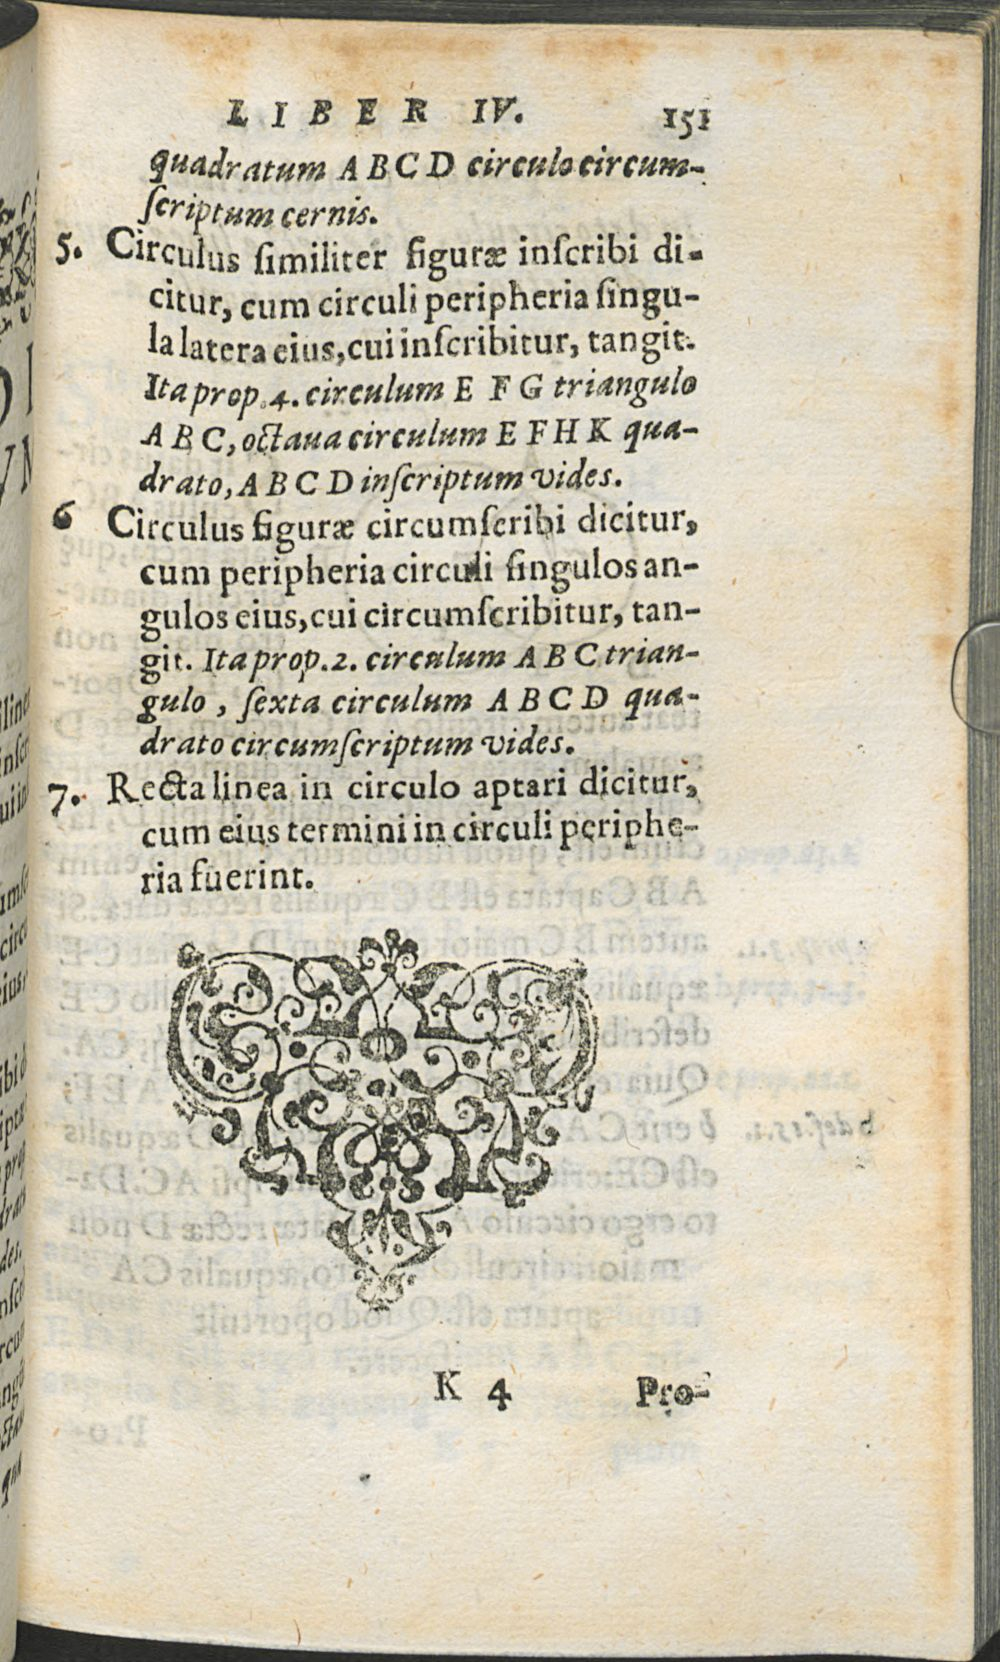 LIBER IV. 151
quadratum ABCD circulo circum-
ſcriptum cernis.
5. Circulus ſimiliter figuræ inſcribi di-
citur, cum circuli peripheria ſingu-
la latera eius, cui inſcribitur, tangit.
Ita prop. 4. circulum E F G triangulo
A B C, octaua circulum E F H K qua-
drato, A B C D inſcriptum vides.
6 Circulus figuræ circumſcribi dicitur,
cum peripheria circuli ſingulos an-
gulos eius, cui circumſcribitur, tan-
git. Ita prop. 2. circulum A B C trian-
gulo, ſexta circulum A B C D qua-
drato circumſcriptum vides.
7. Recta linea in circulo aptari dicitur,
cum eius termini in circuli periphe-
ria fuerint.
K 4 Pro-